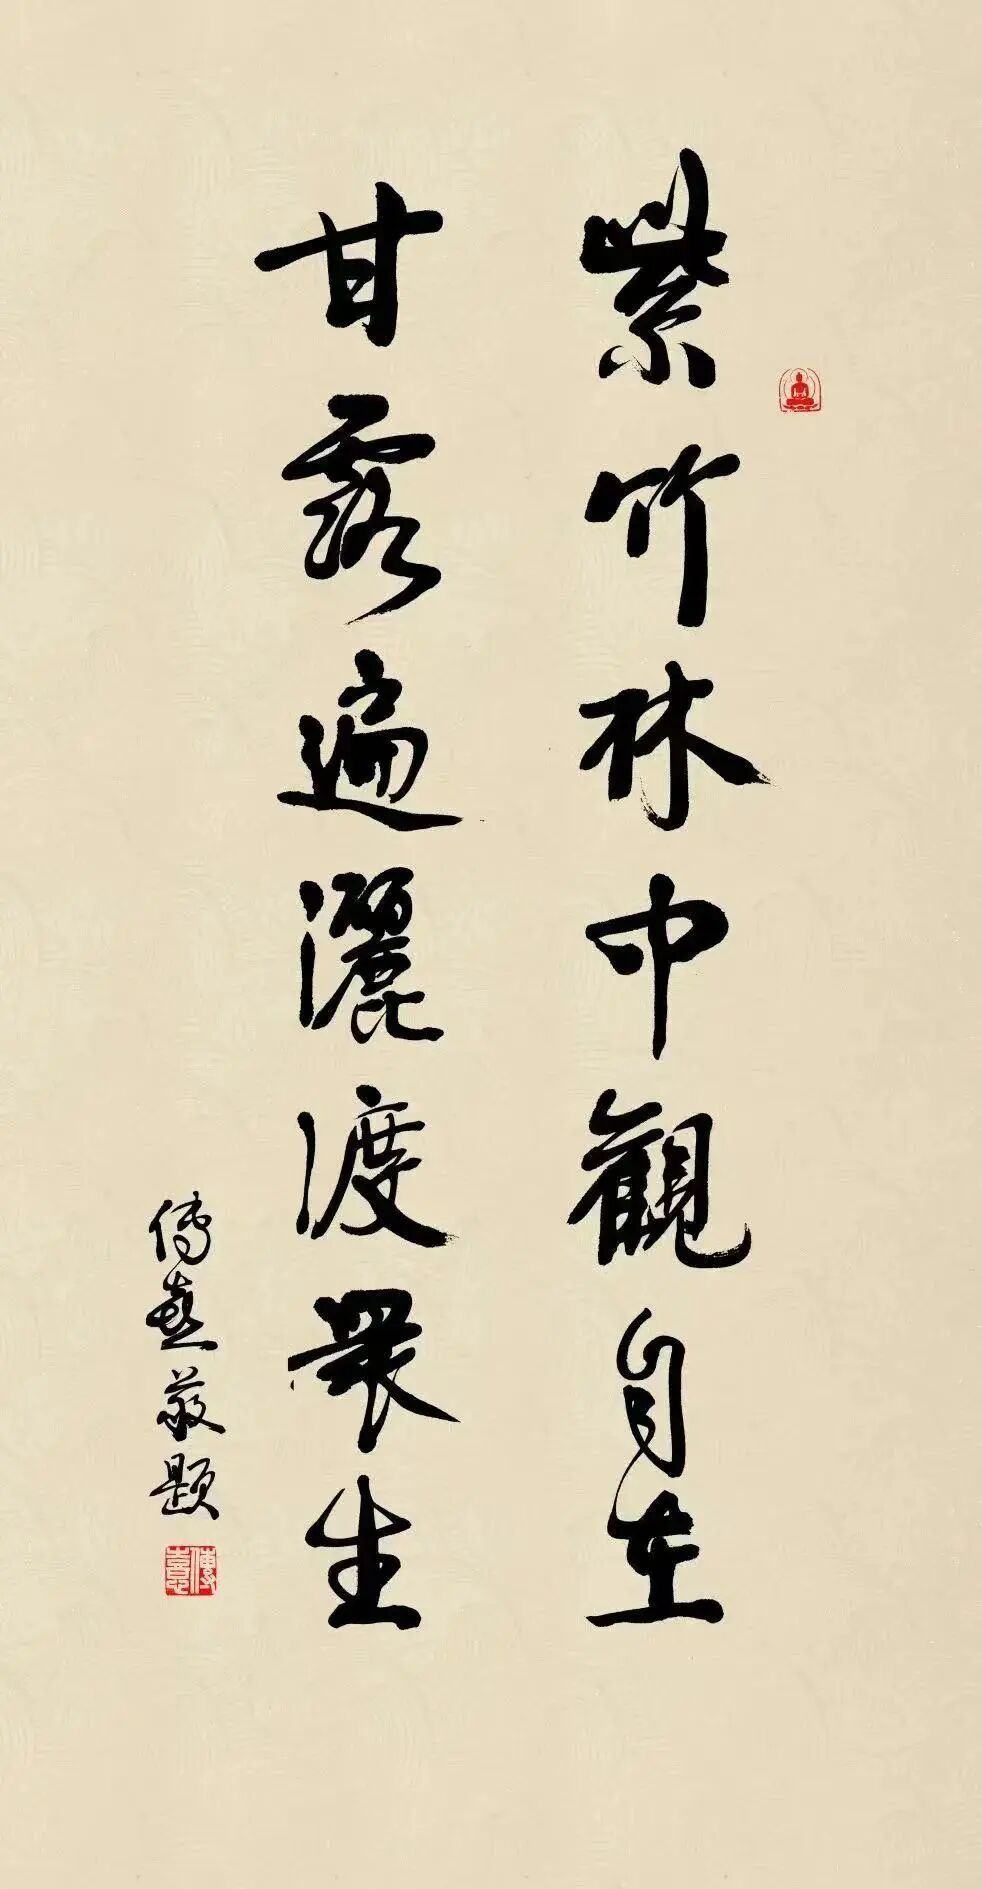 紫竹林中觀自在
甘露遍灑渡眾生
傳喜敬題
傳喜